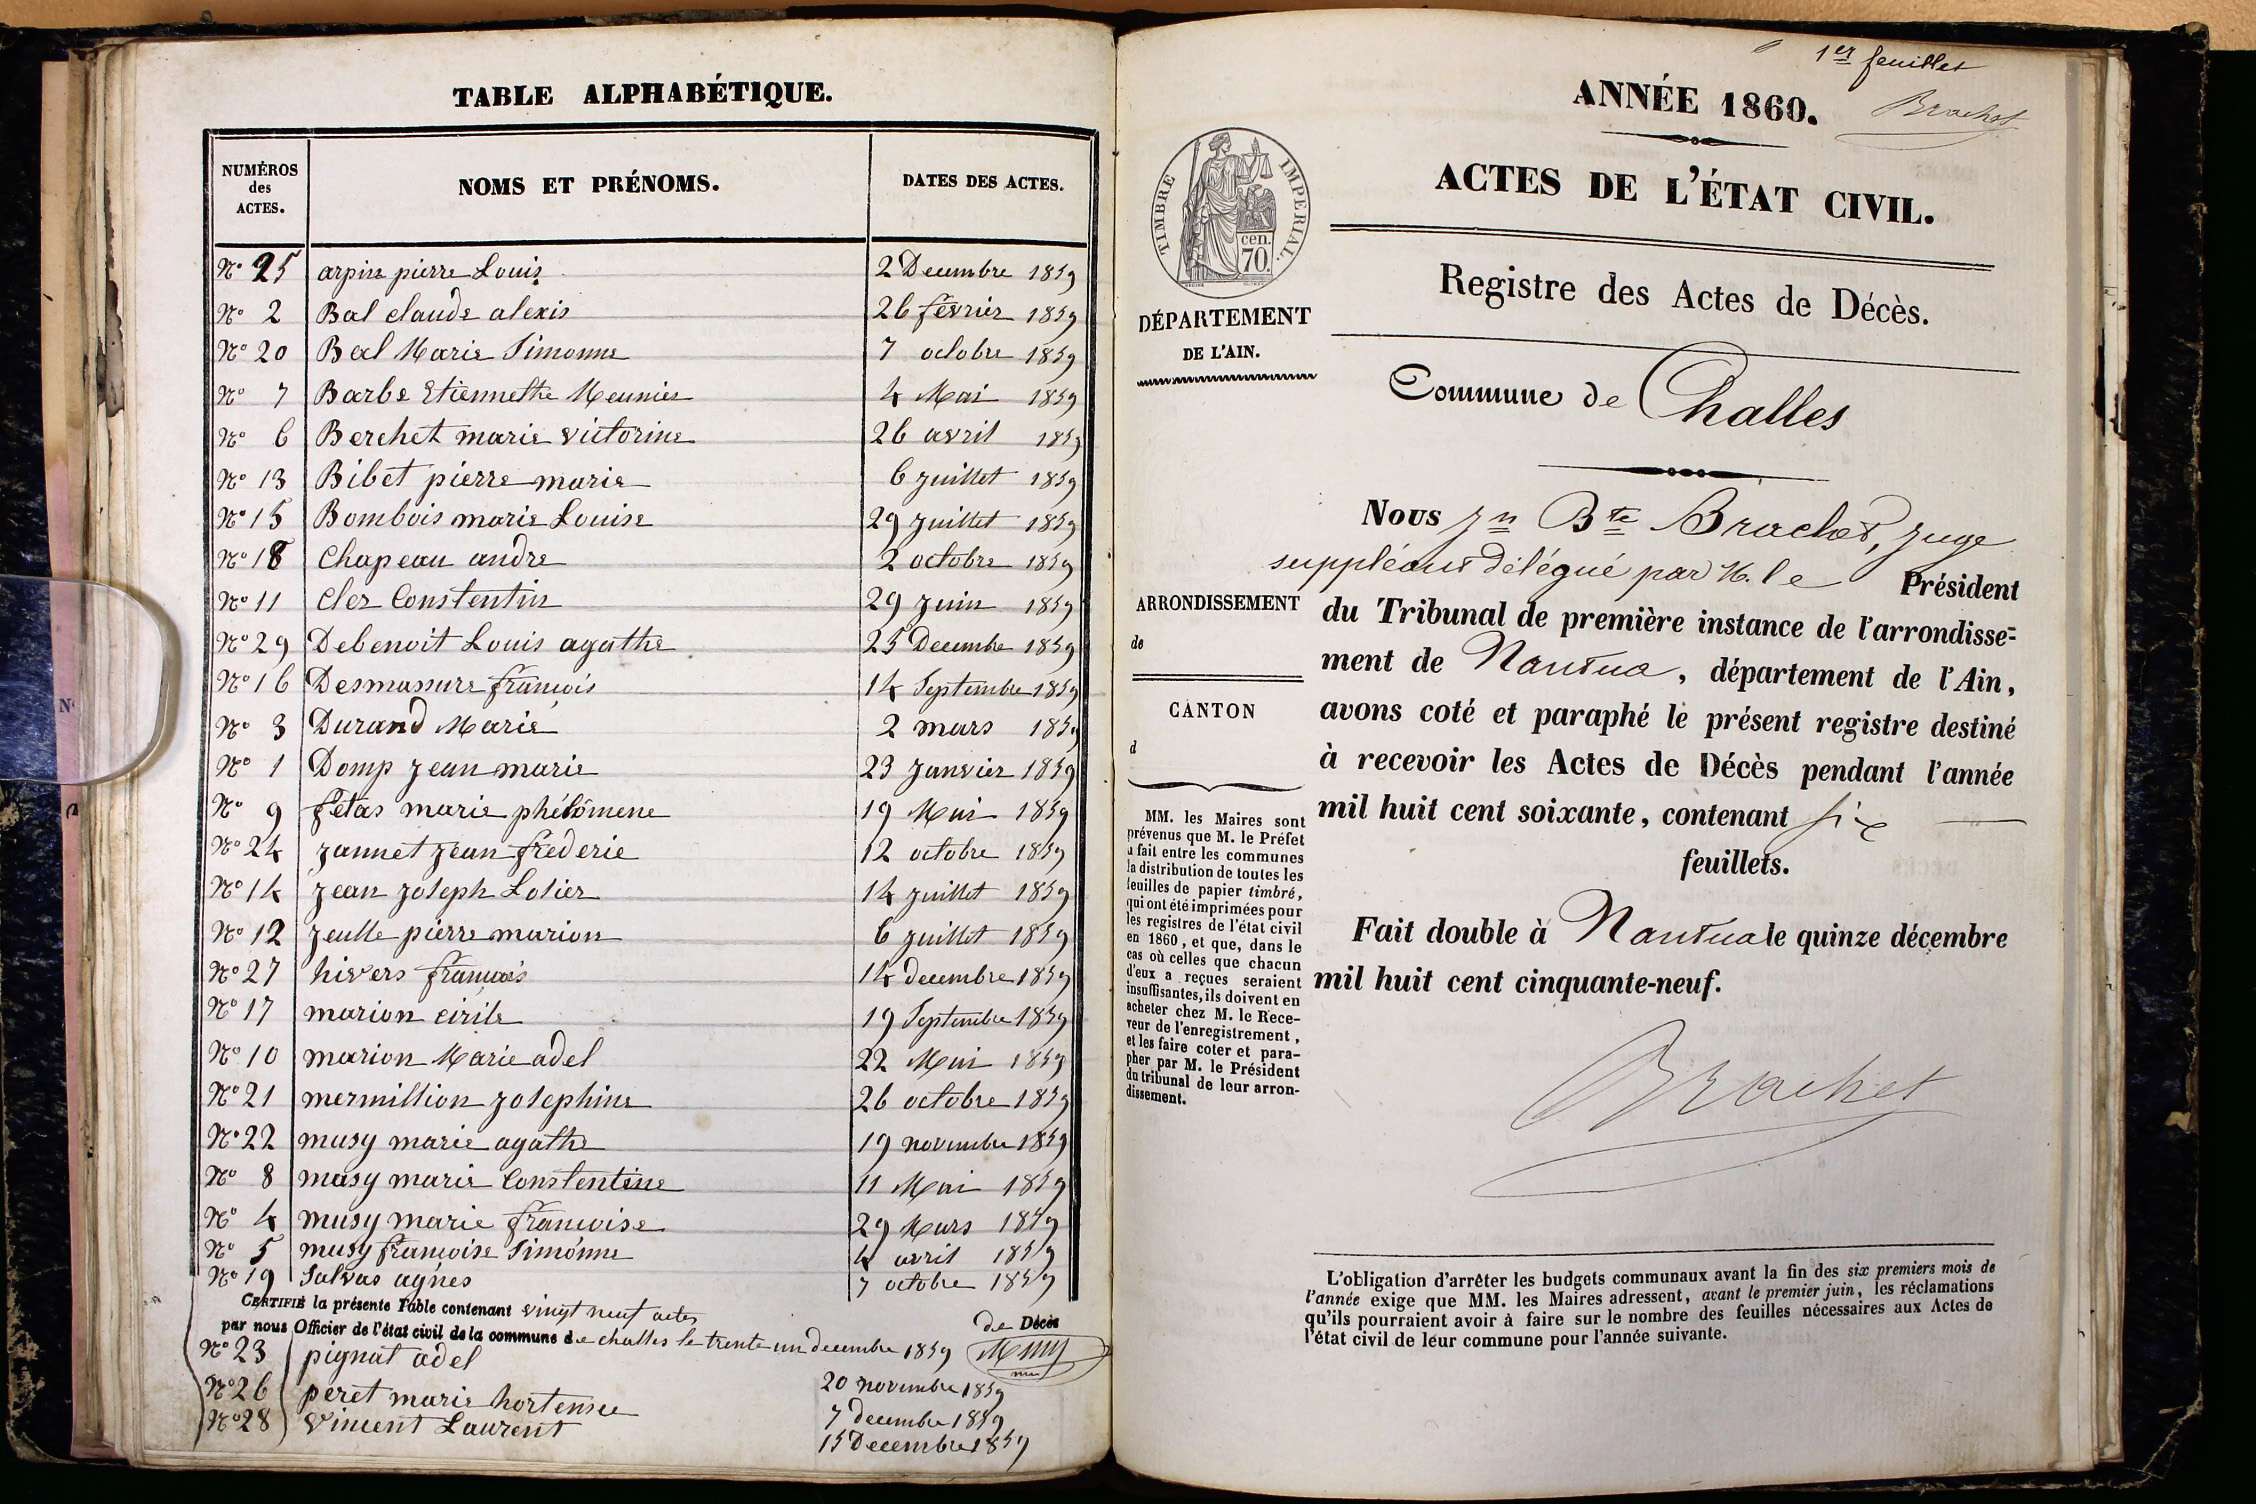 TABLE ALPHABÉTIQUE.
NUMÉROS des ACTES. NOMS ET PRÉNOMS. DATES DES ACTES.
N° 25 arpin pierre Louis 2 Decembre 1859
N° 2 Bal claude alexis 26 février 1859
N° 20 Bal Marie Simonne 7 octobre 1859
N° 7 Barbe Etiennette Meunier 4 Mai 1859
N° 6 Berchet marie victorine 26 avril 1859
N° 13 Bibet pierre marie 6 juillet 1859
N° 15 Bombois marie Louise 29 juillet 1859
N° 18 Chapeau andre 2 octobre 1859
N° 11 Cler Constentin 29 juin 1859
N° 29 Debenoit Louis agathe 25 Decembre 1859
N° 16 Desmassure françois 14 Septembre 1859
N° 3 Durand Marie 2 mars 1859
N° 1 Domp jean marie 23 janvier 1859
N° 9 fetas marie phélomene 19 Mai 1859
N° 24 jannet jean frederic 12 octobre 1859
N° 14 jean joseph Losier 14 juillet 1859
N° 12 jeulle pierre marion 6 juillet 1859
N° 27 hivers françois 14 decembre 1859
N° 17 marion cirile 19 Septembre 1859
N° 10 marion Marie adel 22 Mai 1859
N° 21 mermillion josephine 26 octobre 1859
N° 22 musy marie agathe 19 novembre 1859
N° 8 musy marie Constentine 11 Mai 1859
N° 4 musy marie francoise 29 Mars 1859
N° 5 musy francoise Simonne 4 avril 1859
N° 19 Salvas agnes 7 octobre 1859
CERTIFIÉ la présente Table contenant vingt neuf actes de Décès
par nous Officier de l'état civil de la commune de challes le trente un decembre 1859
N° 23 pignat adel 20 novembre 1859
N° 26 peret marie hortense 7 decembre 1859
N° 28 Vincent Laurent 15 Decembre 1859
1er feuillet
Brachet
ANNÉE 1860.
ACTES DE L'ÉTAT CIVIL.
TIMBRE IMPERIAL.
cen.
70.
DÉPARTEMENT
DE L'AIN.
Registre des Actes de Décès.
Commune de Challes
Nous Jn Bte Brachet, juge
suppléant délégué par M. le Président
du Tribunal de première instance de l'arrondisse-
ment de Nantua, département de l'Ain,
avons coté et paraphé le présent registre destiné
à recevoir les Actes de Décès pendant l'année
mil huit cent soixante, contenant six
feuillets.
Fait double à Nantua le quinze décembre
mil huit cent cinquante-neuf.
Brachet
ARRONDISSEMENT
de
CANTON
d
MM. les Maires sont
prévenus que M. le Préfet
a fait entre les communes
la distribution de toutes les
feuilles de papier timbré,
qui ont été imprimées pour
les registres de l'état civil
en 1860, et que, dans le
cas où celles que chacun
d'eux a reçues seraient
insuffisantes, ils doivent en
acheter chez M. le Rece-
veur de l'enregistrement,
et les faire coter et para-
pher par M. le Président
du tribunal de leur arron-
dissement.
L'obligation d'arrêter les budgets communaux avant la fin des six premiers mois de
l'année exige que MM. les Maires adressent, avant le premier juin, les réclamations
qu'ils pourraient avoir à faire sur le nombre des feuilles nécessaires aux Actes de
l'état civil de leur commune pour l'année suivante.